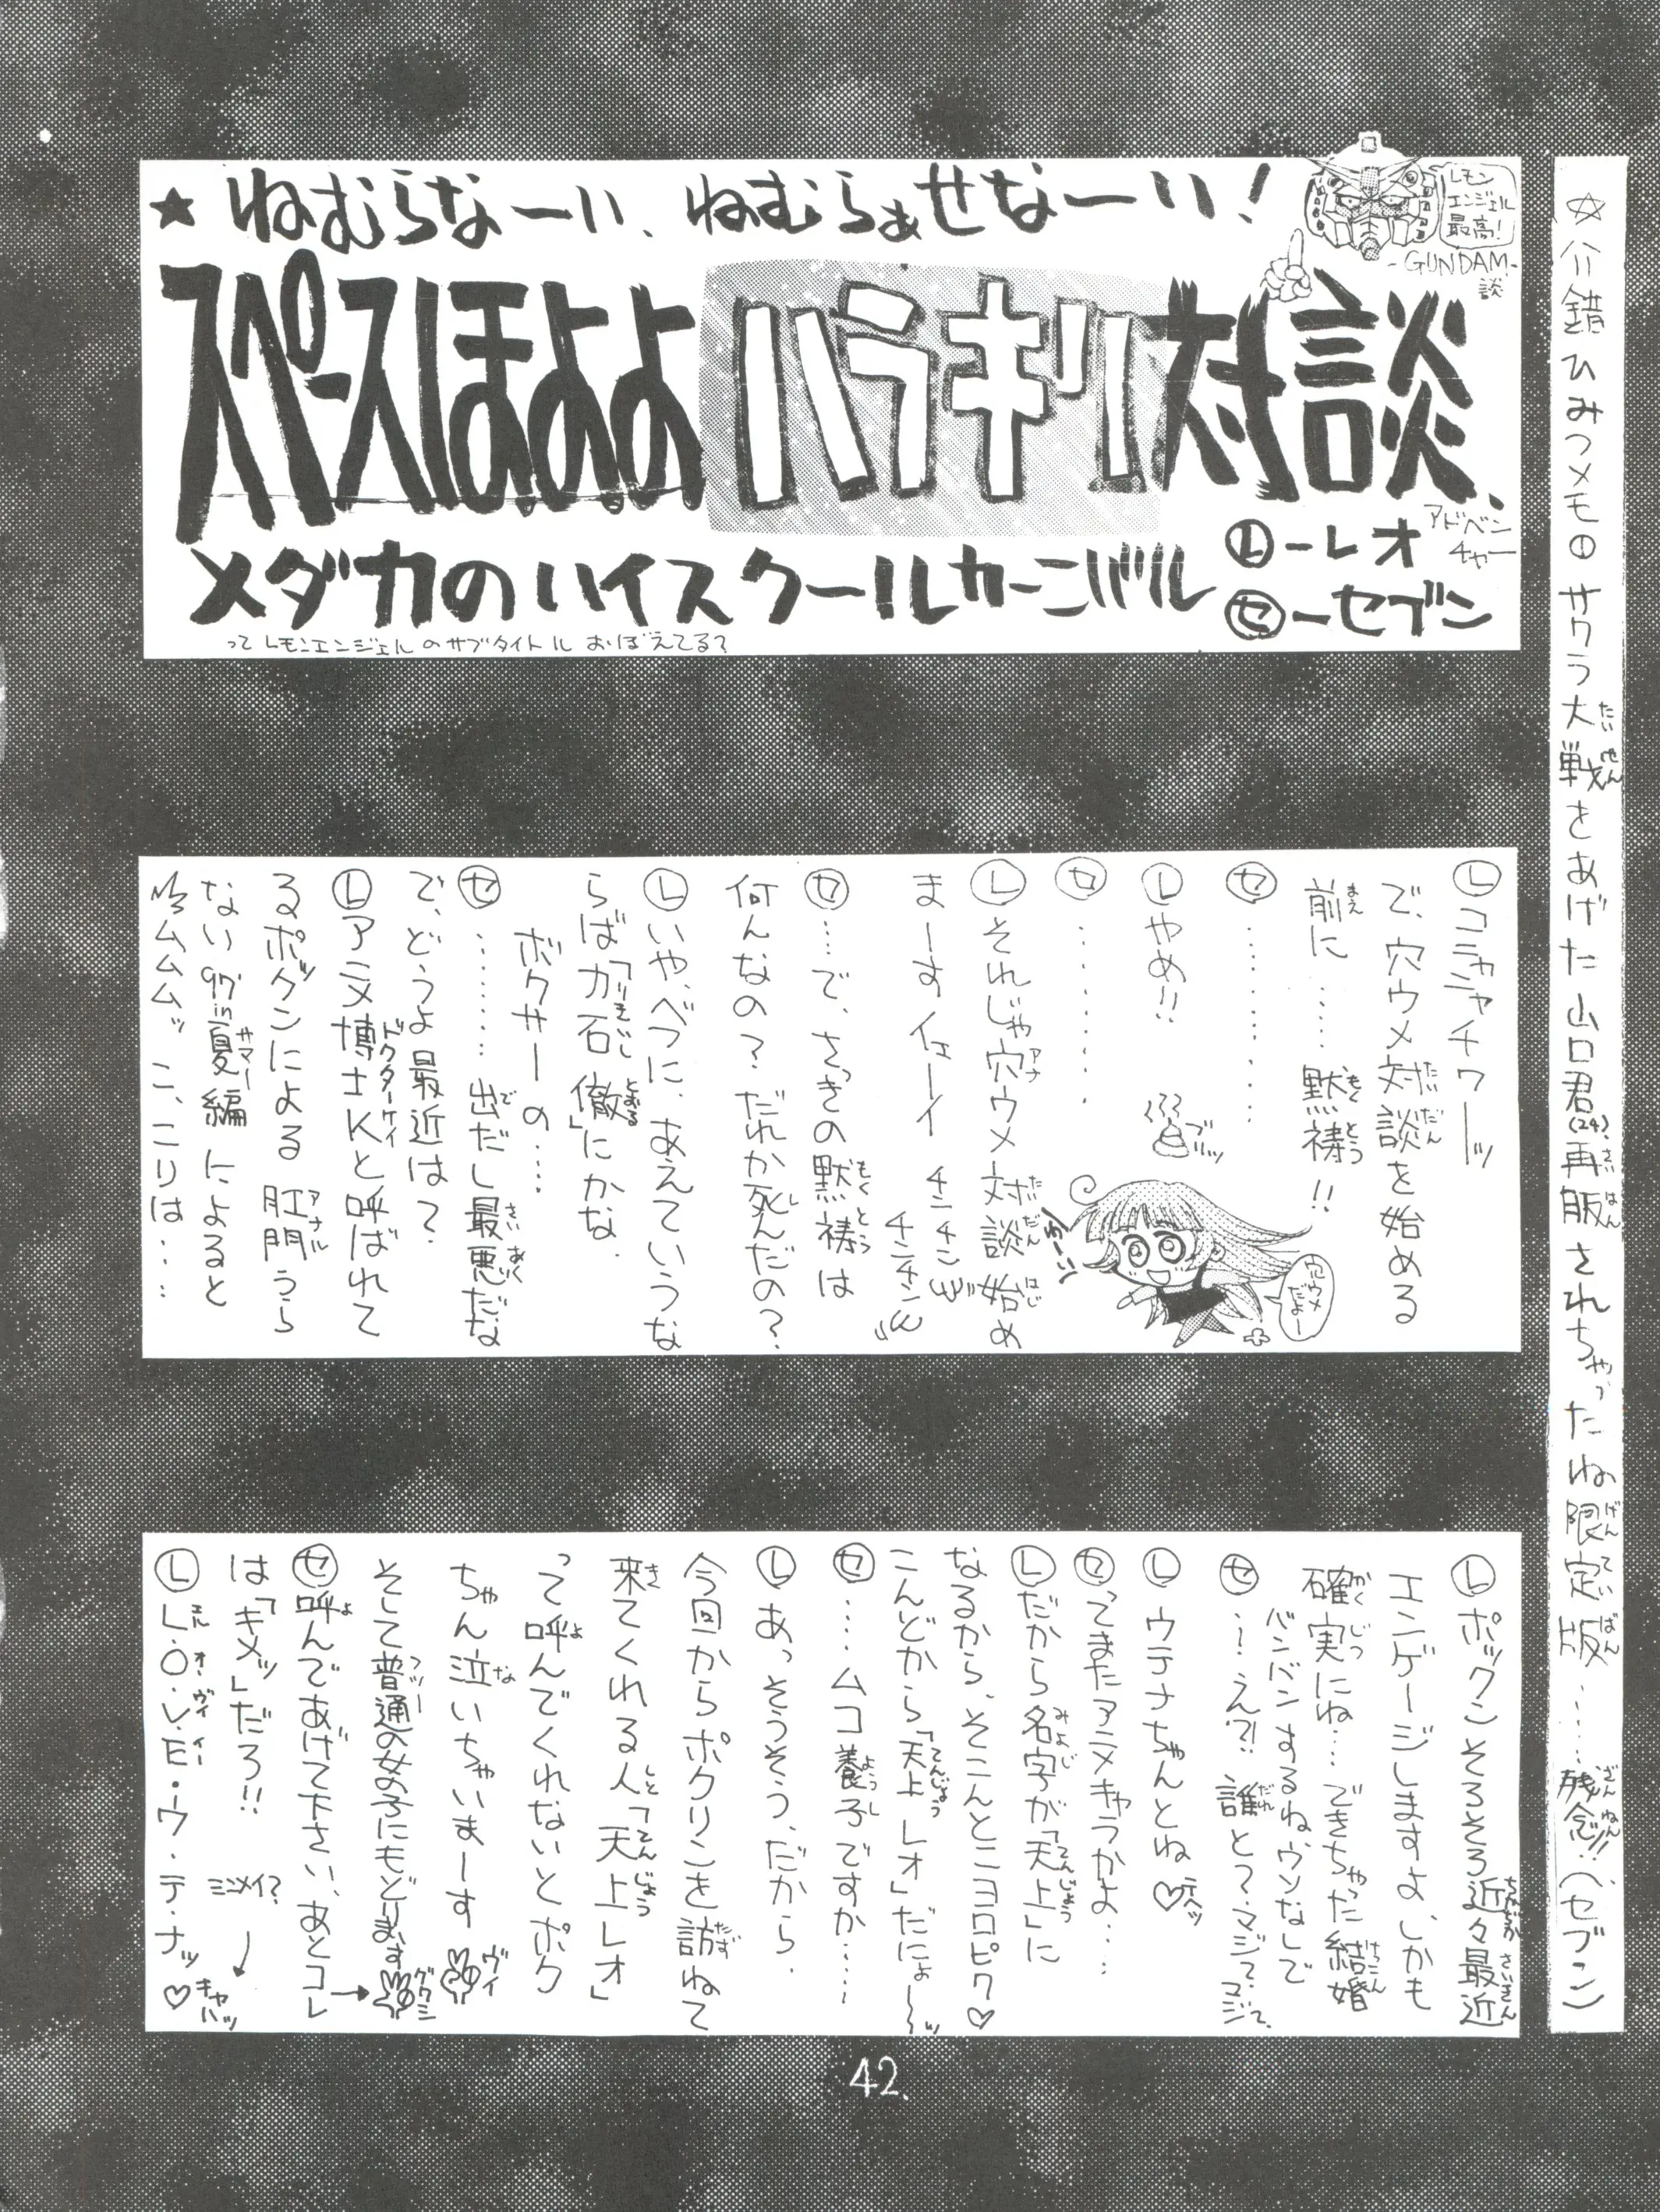 ★ねむらなーい、ねむらぁせなーい!
レモン
エンジェル
最高!
-GUNDAM-
談
スペースほよよハラキリ対談、
メダカのハイスクールカーニバル
Ⓛーレオ
アドベン
チャー
㋝ーセブン
ってレモンエンジェルのサブタイトルおぼえてる?
サクラ大戦をあげた山口君(24)、再販されちゃったね限定版……残念!!(セブン)
Ⓛコニャチワーッ
で、穴ウメ対談を始める
前に……黙祷!!
㋝…………
Ⓛやめ!!
㋝…………
Ⓛそれじゃ穴ウメ対談始め
まーすイェーイ
チンチン
チンチン
穴ウメ
だよー
㋝……で、さっきの黙祷は
何んなの?だれか死んだの?
Ⓛいや、べつに、あえていうな
らば「力石徹」にかな
ボクサーの……
㋝………出だし最悪だな
で、どうよ最近は?
Ⓛアニメ博士Kと呼ばれて
るポックンによる肛門うら
ない97in夏編によると
ムムムッこ、こりは…
Ⓛポックンそろそろ近々最近
エンゲージしますよ、しかも
確実にね…できちゃった結婚
バンバンするねウンなして
㋝…え?!誰と?マジで、マジで
Ⓛウテナちゃんとね♡
㋝ってまたアニメキャラかよ…
Ⓛだから名字が「天上」に
なるから、そこんとこヨロピク♡
こんどから「天上レオ」だにょ〜ッ
㋝……ムコ養子ですか……
Ⓛあっそうそう、だから
今回からポクリンを訪ねて
来てくれる人「天上レオ」
って呼んでくれないとポク
ちゃん泣いちゃいまーす
ヴイ
そして普通の女の子にもどります
㋝呼んであげて下さい、あとコレ
は「キメッ」だろ!!
ミンメイ?
ⓁL.O.V.E・ウ・テ・ナッ♡
キャハッ
42.